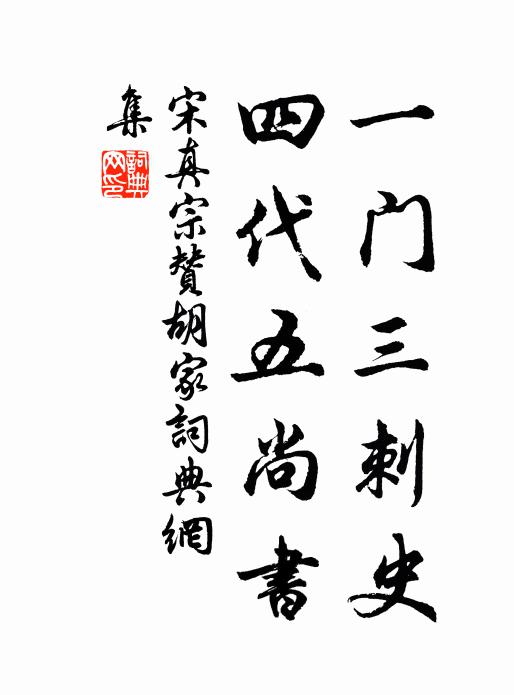 一门三刺史
四代五尚書
宋真宗贊胡家詞典網
集
詞典网印